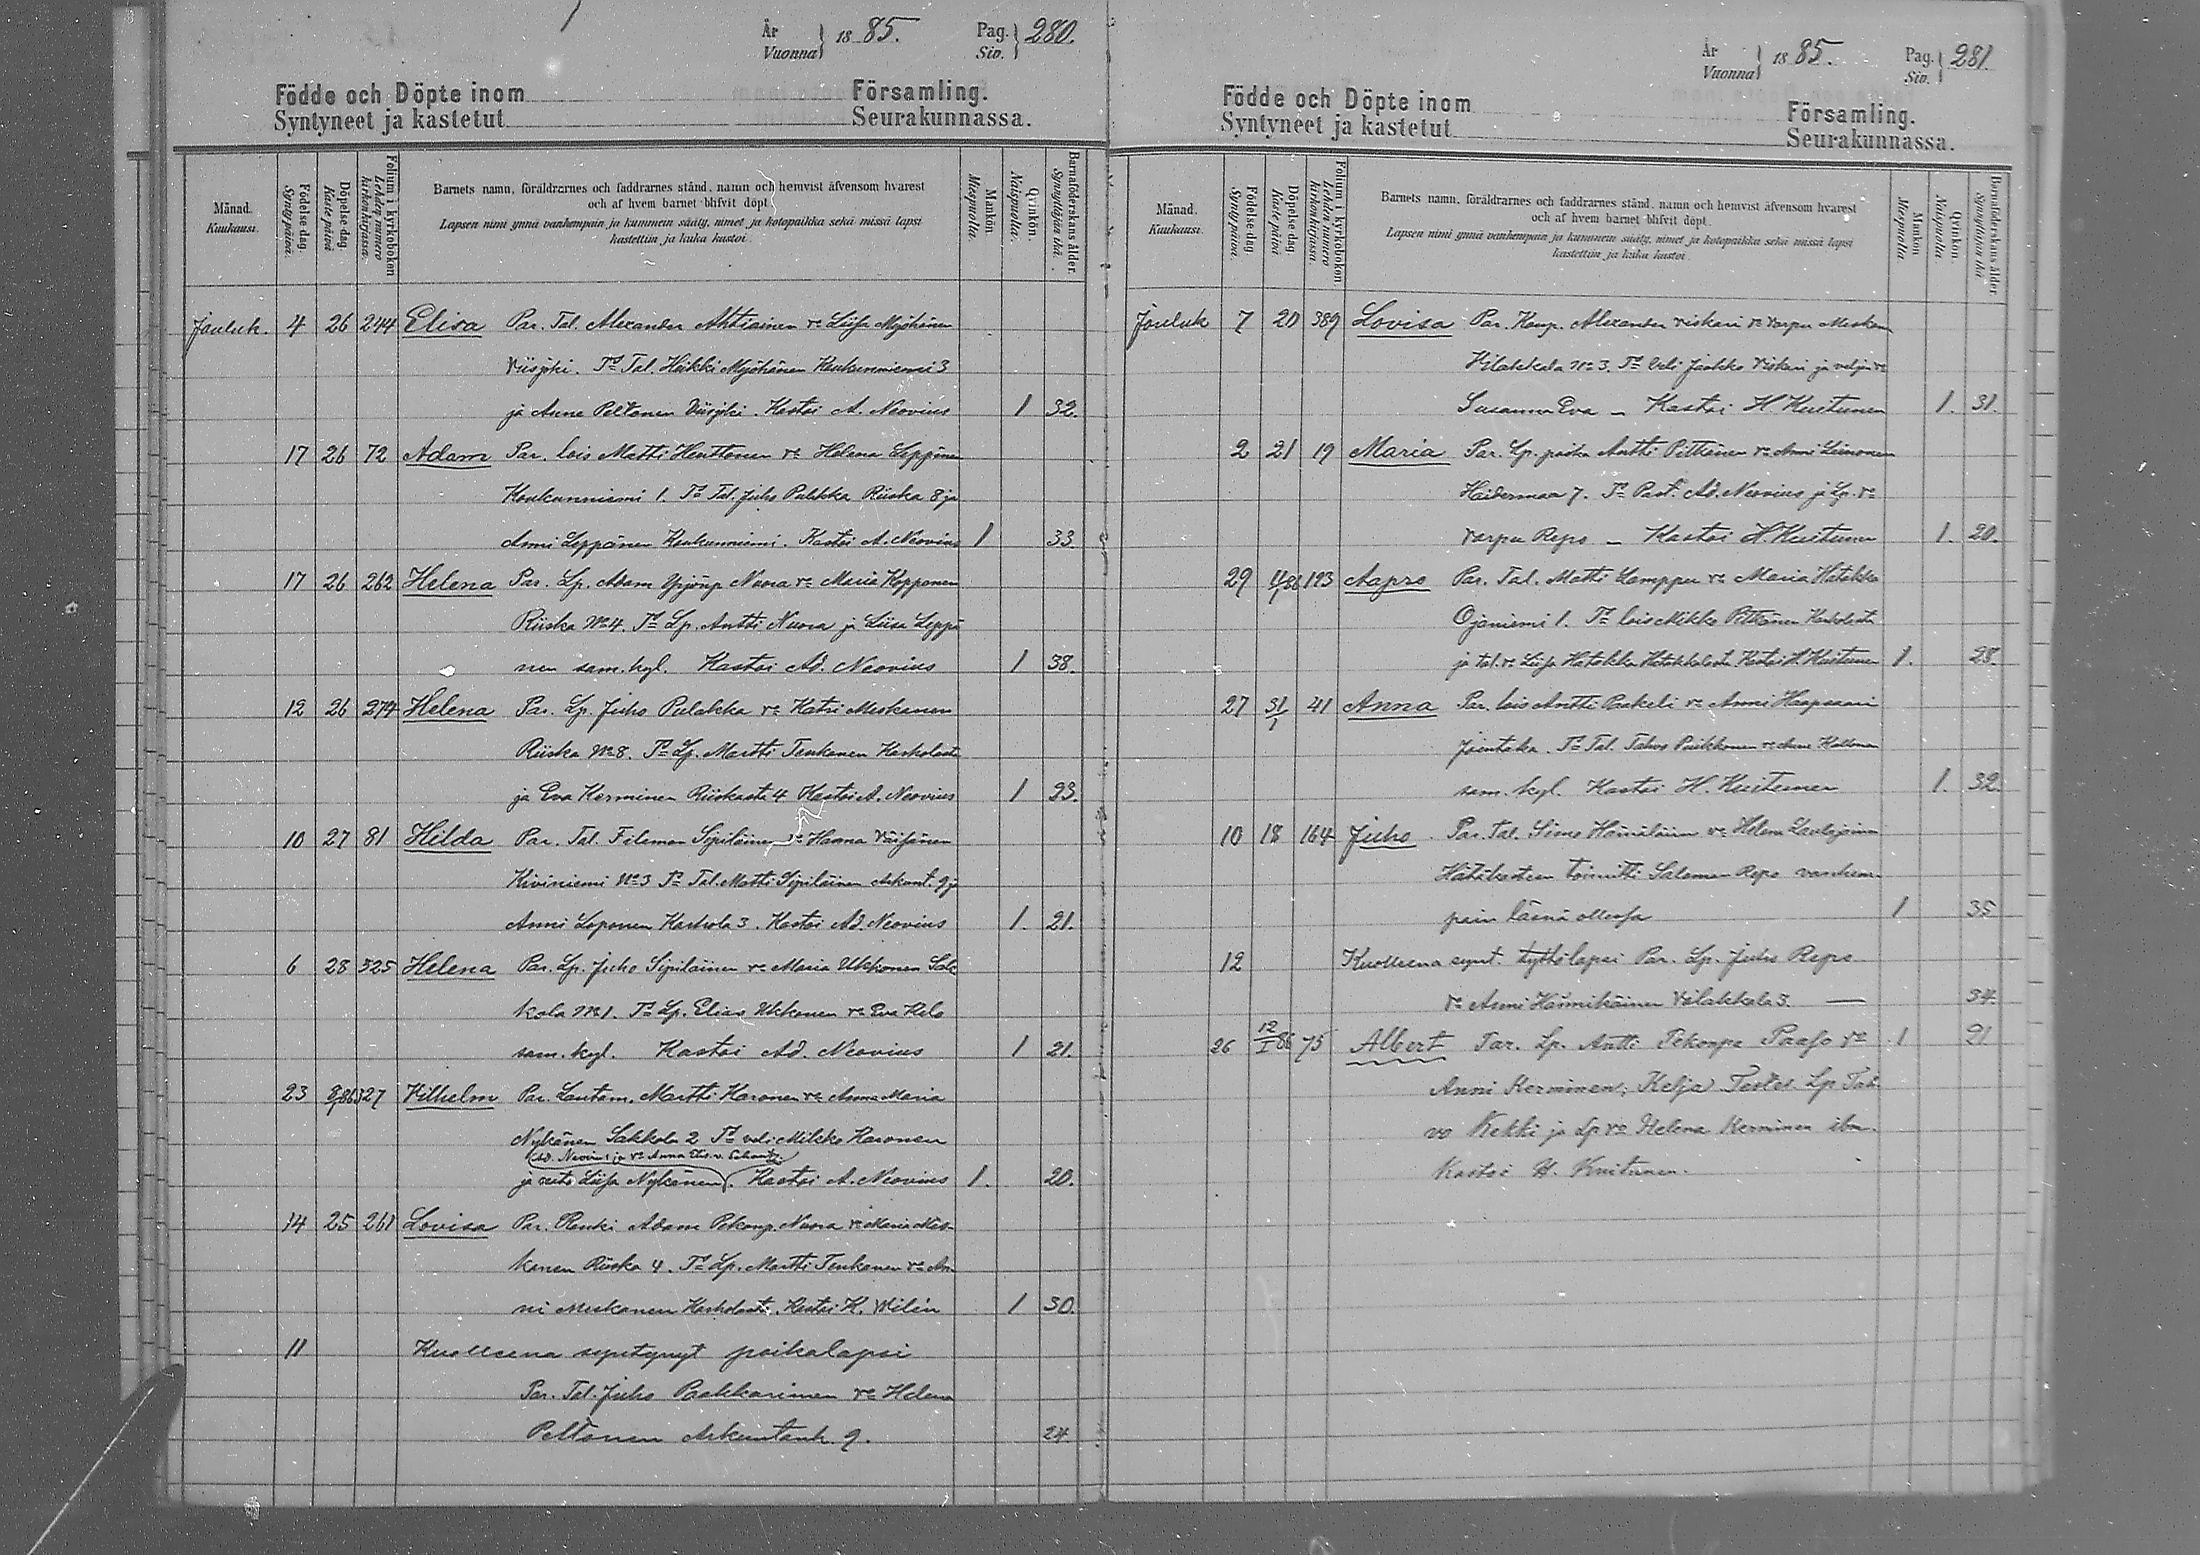 År
Vuonna
1885.
Pag.
Siv.
280.
Födde och Döpte inom Församling.
Syntyneet ja kastetut Seurakunnassa.
Månad.
Kuukausi.
Födelse dag.
Syntypäivä.
Döpelse dag.
Kastepäivä
Folium i kyrkobokon
Lehden numero kirkonkirjassa.
Barnets namn, föräldrarnes och faddrarnes stånd, namn och hemvist äfvensom hvarest
och af hvem barnet blifvit döpt.
Lapsen nimi ynnä vanhempain ja kummein sääty, nimet ja kotopaikka sekä missä lapsi
kastettiin ja kuka kastoi.
Mankön
Miespuolia.
Qvinkön.
Naispuolia.
Barnaföderskans ålder.
Synnyttäjän ikä.
Jouluk. 4 26 244 Elisa Par. Tal. Alexander Ahtiainen vo Liisa Myöhänen
Viisjoki. To Tal. Heikki Myöhänen Koukunniemi 3
ja Anna Peltonen Viisjoki. Kastoi A. Neovius 1 32.
17 26 72 Adam Par. lois Matti Henttonen vo Helena Leppänen
Koukunniemi 1. To Tal. Juho Pulakka Riiska 8 ja
Anni Leppänen Koukunniemi. Kastoi A. Neovius 1 33.
17 26 262 Helena Par. Lp. Adam Yrjönp. Nuora vo Maria Kopponen
Riiska No 4. To Lp. Antti Nuora ja Liisa Leppä
nen sam. kyl. Kastoi Ad. Neovius 1 38.
12 26 274 Helena Par. Lp. Juho Pulakka vo Katri Meskanen
Riiska No 8. To Lp. Martti Tenkanen
ja Eva Kerminen Riiskasta 4 Kastoi A. Neovius 1 23.
10 27 81 Hilda Par. Tal. Fileman Sipiläinen vo Hanna Väisänen
Kiviniemi No 3 To Tal. Matti Sipiläinen Arkunt. 9 ja
Anni Loponen 3. Kastoi Ad. Neovius 1. 21.
6 28 325 Helena Par. Lp. Juho Sipiläinen vo Maria Ukkonen Sak
kola No 1. To Lp. Elias Ukkonen vo Eva
sam. kyl. Kastoi Ad. Neovius 1 21.
23 327 Vilhelm Par. Lautam. Martti Karonen vo Anna Maria
Nykänen Sakkola 2 To veli Mikko Karonen
Ad. Neovius ja vo Anna
ja Liisa Nykänen. Kastoi A. Neovius 1. 20.
14 25 261 Lovisa Par. Renki Adam Pekonp. Nuora vo Maria Mes-
kanen Riiska 4. To Lp. Martti Tenkanen vo An
ni Meskanen. Kastoi K. Wilén 1 30.
11 Kuolleena syntynyt poikalapsi
Par. Tal. Juho Paakkarinen vo Helena
Peltonen Arkuntank. 9. 24.
År
Vuonna
1885.
Pag.
Siv.
281.
Födde och Döpte inom Församling.
Syntyneet ja kastetut Seurakunnassa.
Månad.
Kuukausi.
Födelse dag.
Syntypäivä.
Döpelse dag.
Kastepäivä
Folium i kyrkobokon
Lehden numero kirkonkirjassa.
Barnets namn, föräldrarnes och faddrarnes stånd, namn och hemvist äfvensom hvarest
och af hvem barnet blifvit döpt.
Lapsen nimi ynnä vanhempain ja kummein sääty, nimet ja kotopaikka sekä missä lapsi
kastettiin ja kuka kastoi.
Mankön
Miespuolia
Qvinkön.
Naispuolia
Barnaföderskans ålder
Synnyttäjän ikä
Jouluk 7 20 389 Lovisa Par. Kaup. Alexander Viskari vo Varpu
Vilakkala No 3. To Veli Jaakko Viskari ja veljen vo
Susanna Eva – Kastoi H Kuitunen 1. 31.
2 21 19 Maria Par. Lp. poika Antti Pitkänen vo Anni Liimonen
Haidermaa 7. To Past. Ad. Neovius ja Lp. vo
Varpu Repo – Kastoi H. Kuitunen 1. 20.
29 193 Aapro Par. Tal. Matti Lamppu vo Maria Hatakka
Ojaniemi 1. To lois Mikko Pitkänen
ja tal. vo Liisa Hatakka Kastoi H. Kuitunen 1. 28.
27 31/1 41 Anna Par. lois Antti vo Anni Haapsaari
To Tal. Tahvo Puikkonen
sam. kyl. Kastoi H. Kuitunen 1. 32.
10 18 164 Juho Par. Tal. Simo Hämäläinen vo Helena
Hätäkasteen toimitti Salomon Repo vanhem-
pain läsnä ollessa 1 35
12 Kuolleena synt. tyttölapsi Par. Lp. Juho Repo
vo Anni Vilakkala 3. — 34.
26 12/I 86 75 Albert Par. Lp. Antti Pekonpo Paaso vo 1 21
Anni Kerminen, Kelja Testes Lp Tah
vo Kekki ja Lp vo Helena Kerminen ibm.
Kastoi H. Kuitunen.